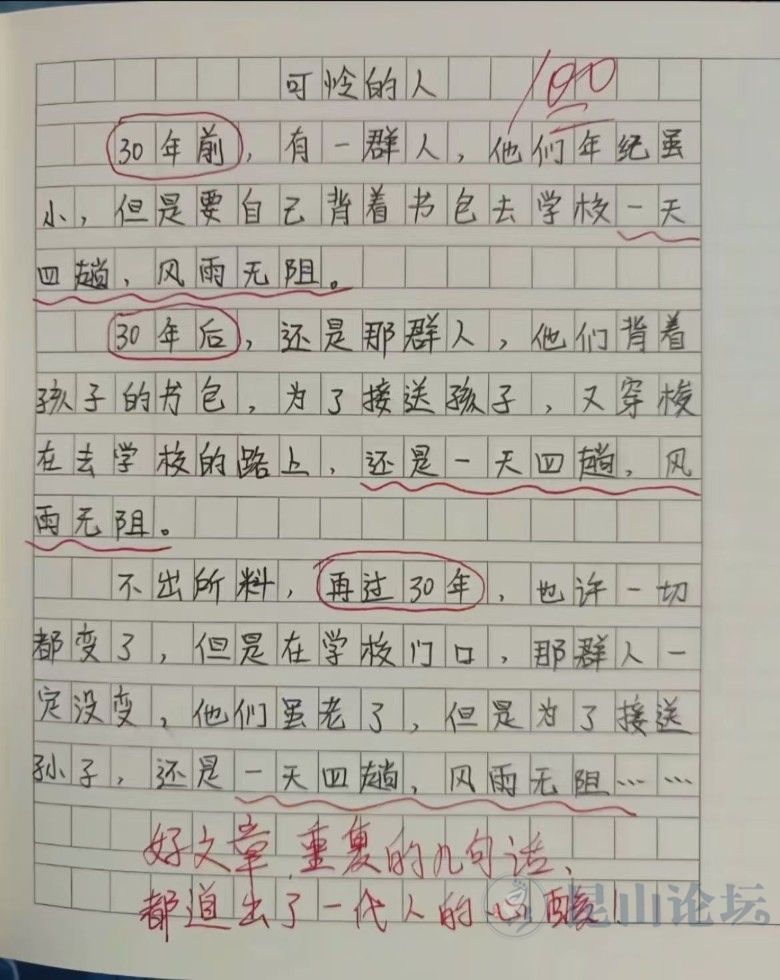 可怜的人
100
30年前，有一群人，他们年纪虽
小，但是要自己背着书包去学校一天
四趟，风雨无阻。
30年后，还是那群人，他们背着
孩子的书包，为了接送孩子，又穿梭
在去学校的路上，还是一天四趟，风
雨无阻。
不出所料，再过30年，也许一切
都变了，但是在学校门口，那群人一
定没变，他们虽老了，但是为了接送
孙子，还是一天四趟，风雨无阻……
好文章，重复的几句话、
都道出了一代人的心酸！
昆山论坛